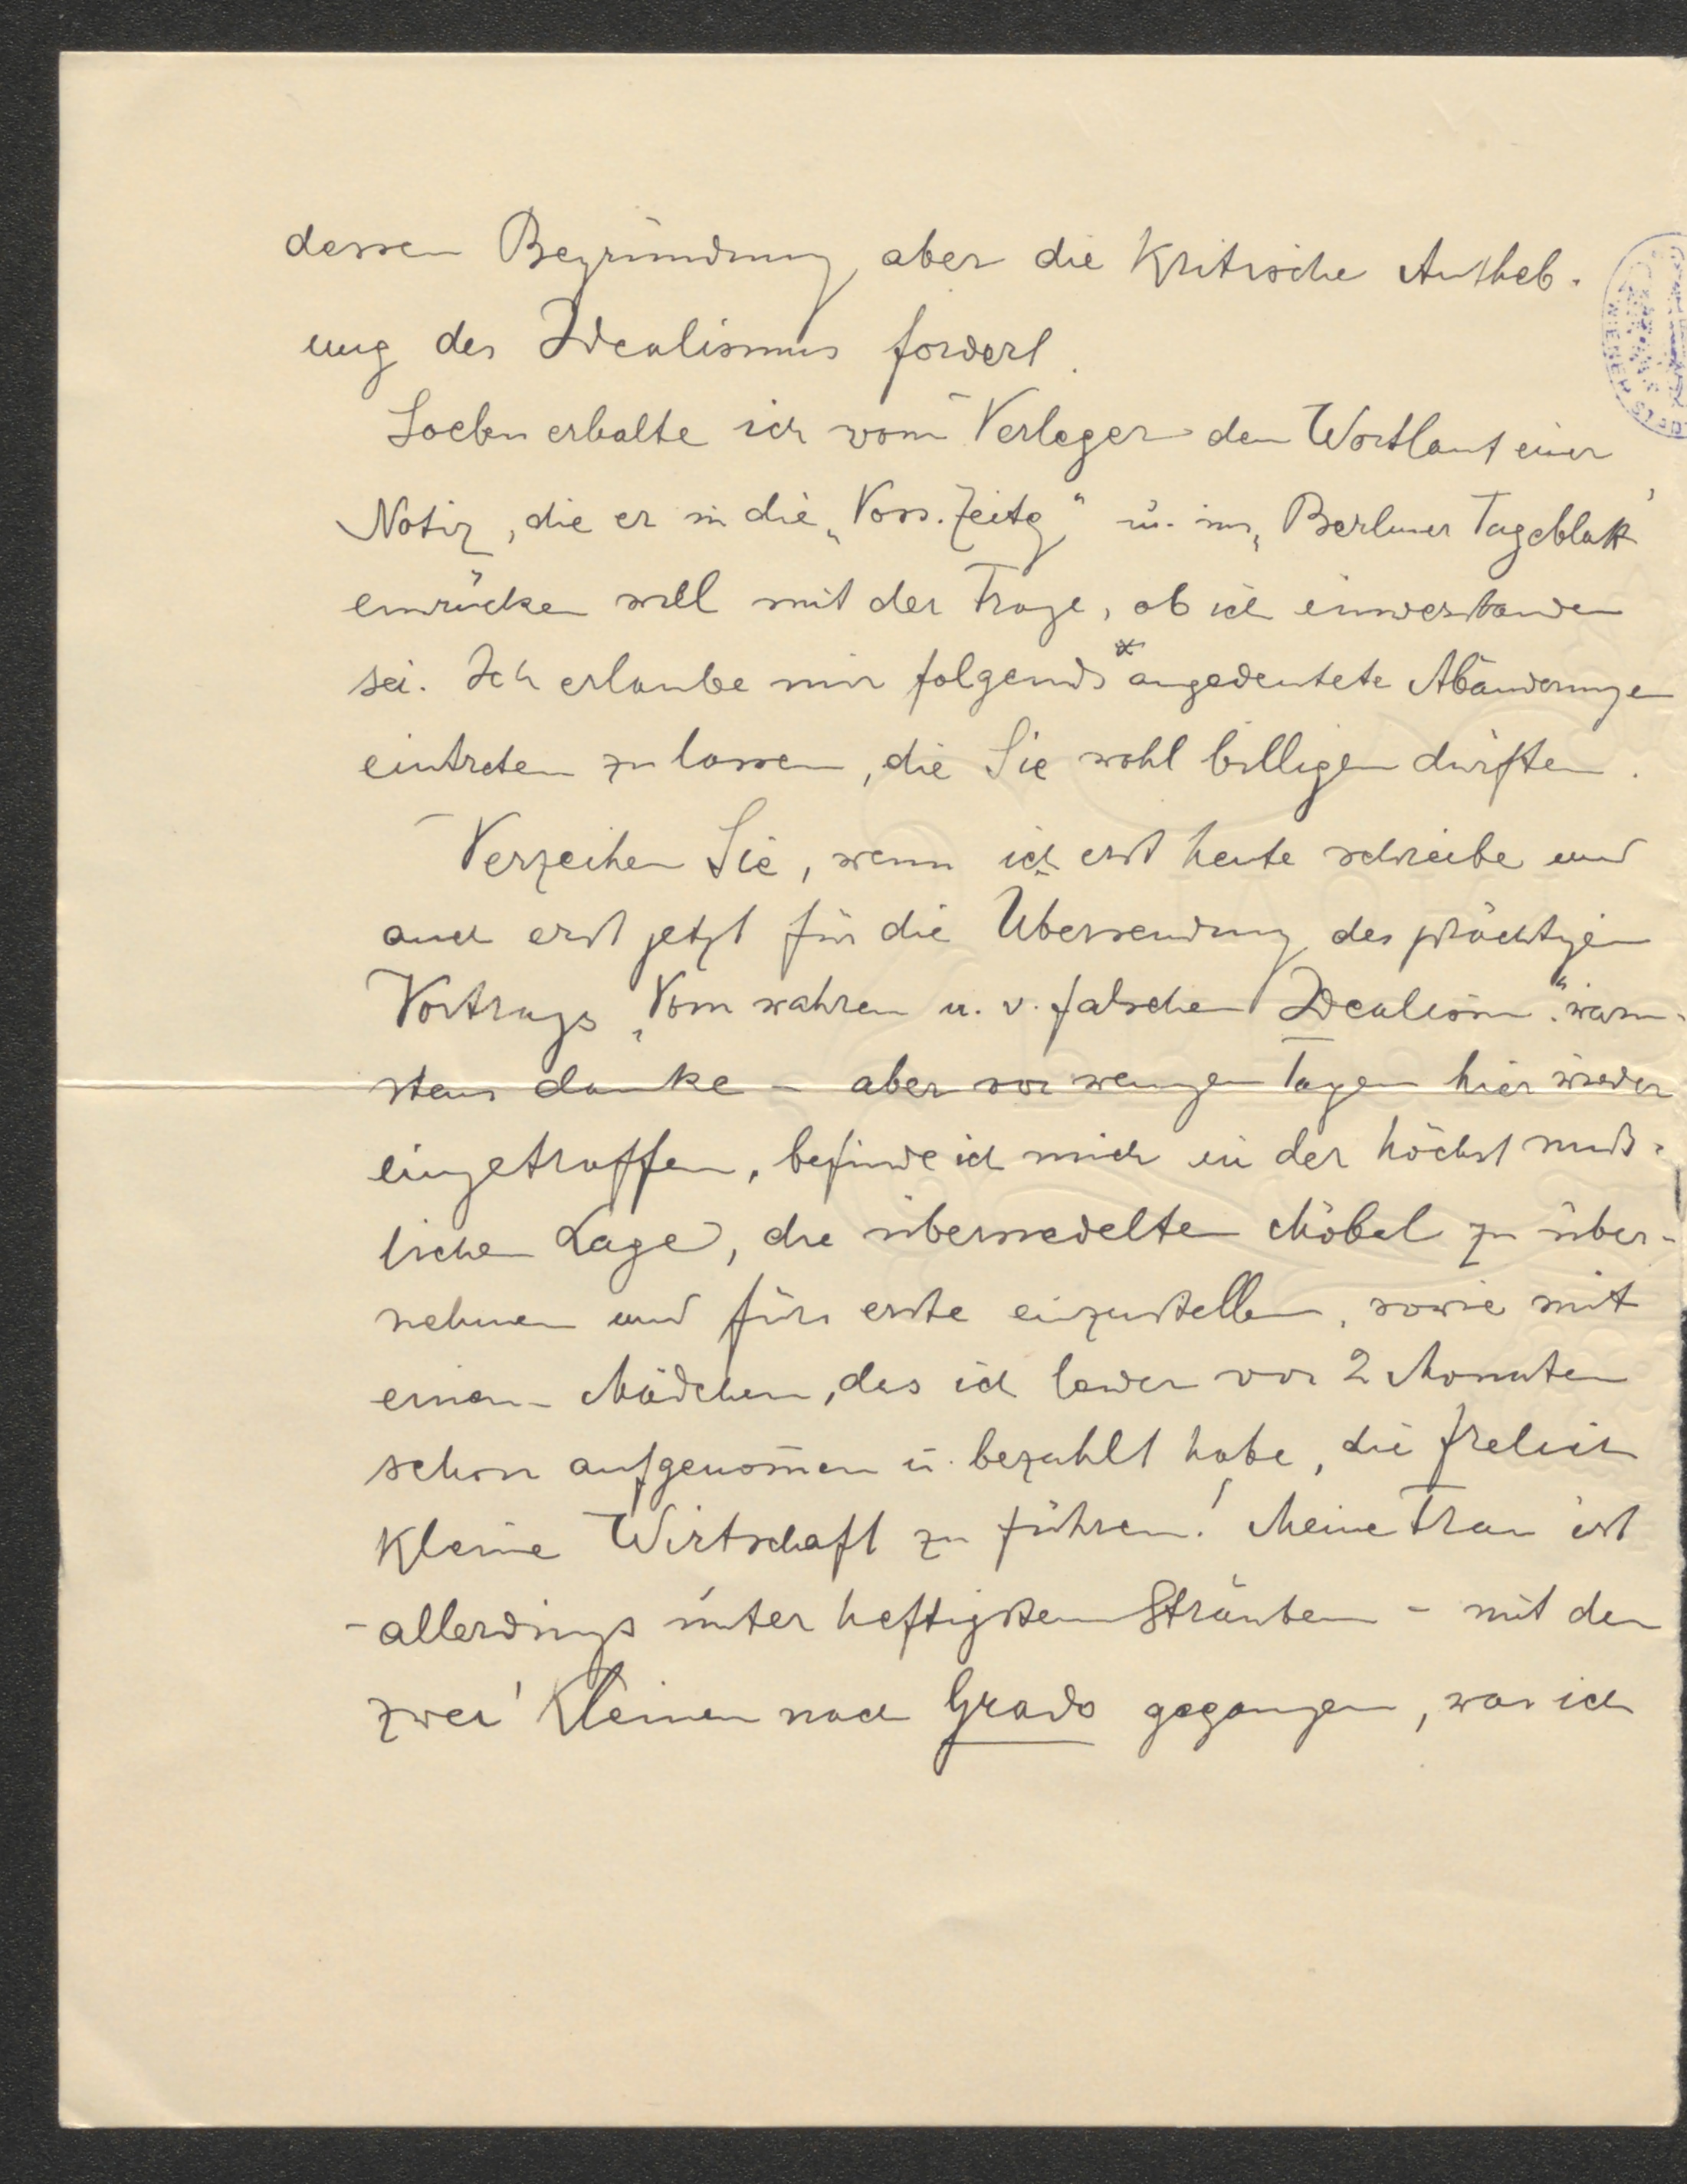 dessen Begründung aber die kritische Aufheb-
ung des Idealismus fordert.
Soeben erhalte ich vom Verleger den Wortlaut einer
Notiz, die er in die „Voss. Zeitg“ u. ins „Berliner Tageblatt“
einrücken will mit der Frage, ob ich einverstanden
sei. Ich erlaube mir folgends* angedeutete Abänderungen
eintreten zu lassen, die Sie wohl billigen dürften.
Verzeihen Sie, wenn ich erst heute schreibe und
auch erst jetzt für die Übersendung des prächtigen
Vortrags „Vom wahren u. v. falschen Idealism.“ wärm-
stens danke – aber vor wenigen Tagen hier wieder
eingetroffen, befinde ich mich in der höchst miß-
lichen Lage, die übersiedelten Möbel zu über-
nehmen und fürs erste einzustellen, sowie mit
einem Mädchen, das ich leider vor 2 Monaten
schon aufgenom̄en u. bezahlt habe, die freilich
kleine Wirtschaft zu führen! Meine Frau ist
– allerdings unter heftigstem Sträuben – mit den
zwei Kleinen nach Grado gegangen, was ich